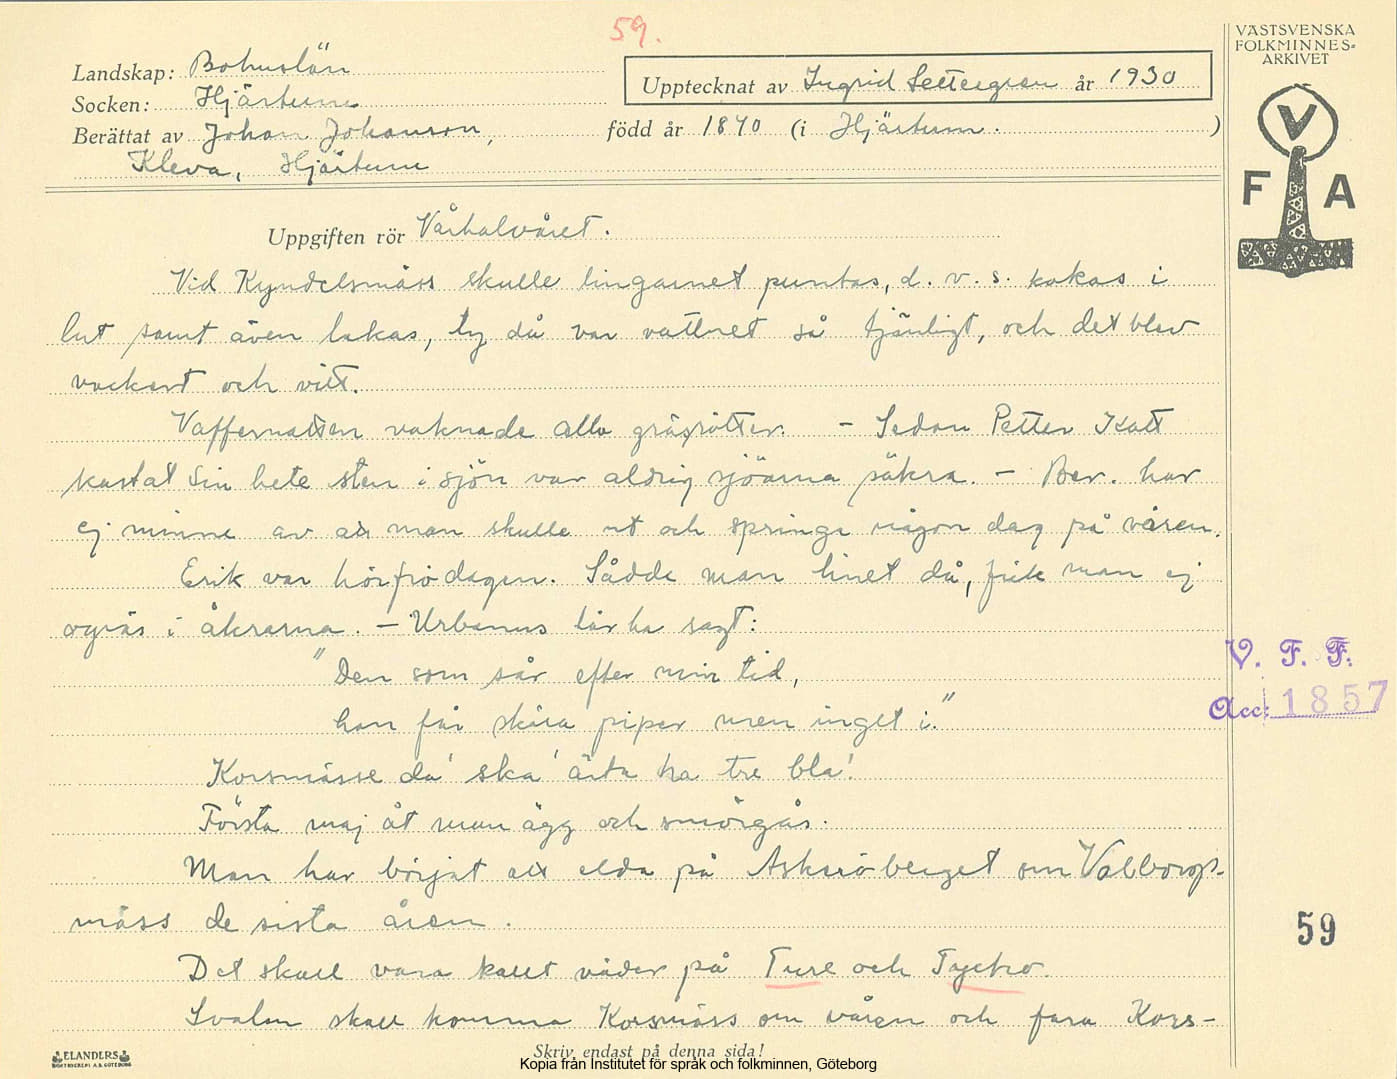 59.
VÄSTSVENSKA
FOLKMINNES=
ARKIVET
Landskap: Bohuslän
Upptecknat av Ingrid Settergren år 1930
Socken: Hjärtum
Berättat av Johan Johanson, född år 1870 (i Hjärtum. )
Kleva, Hjärtum
V
F A
Uppgiften rör Vårhalvåret.
Vid Kyndelsmäss skulle lingarnet puntas, d. v. s. kokas i
lut samt även lakas, ty då var vattnet så tjänligt, och det blev
vackert och vitt.
Vaffernatten vaknade alla gräsrötter. – Sedan Petter Katt
kastat sin hete sten i sjön var aldrig sjöarna säkra. – Ber. har
ej minne av att man skulle ut och springa någon dag på våren.
Erik var hörfrödagen. Sådde man linet då, fick man ej
ogräs i åkrarna. – Urbanus lär ha sagt:
"Den som sår efter min tid,
han får skära pipor men inget i."
Korsmässe då' ska' ärta ha tre bla'.
Första maj åt man ägg och smörgås.
Man har börjat att elda på berget om Valborgs-
mäss de sista åren.
Det skall vara kallt väder på Ture och Tycho.
Svalan skall komma Korsmäss om våren och fara Kors-
V. F. F.
Acc: 1857
59
ELANDERS
BOKTRYCKERI A.B. GÖTEBORG
Skriv endast på denna sida!
Kopia från Institutet för språk och folkminnen, Göteborg